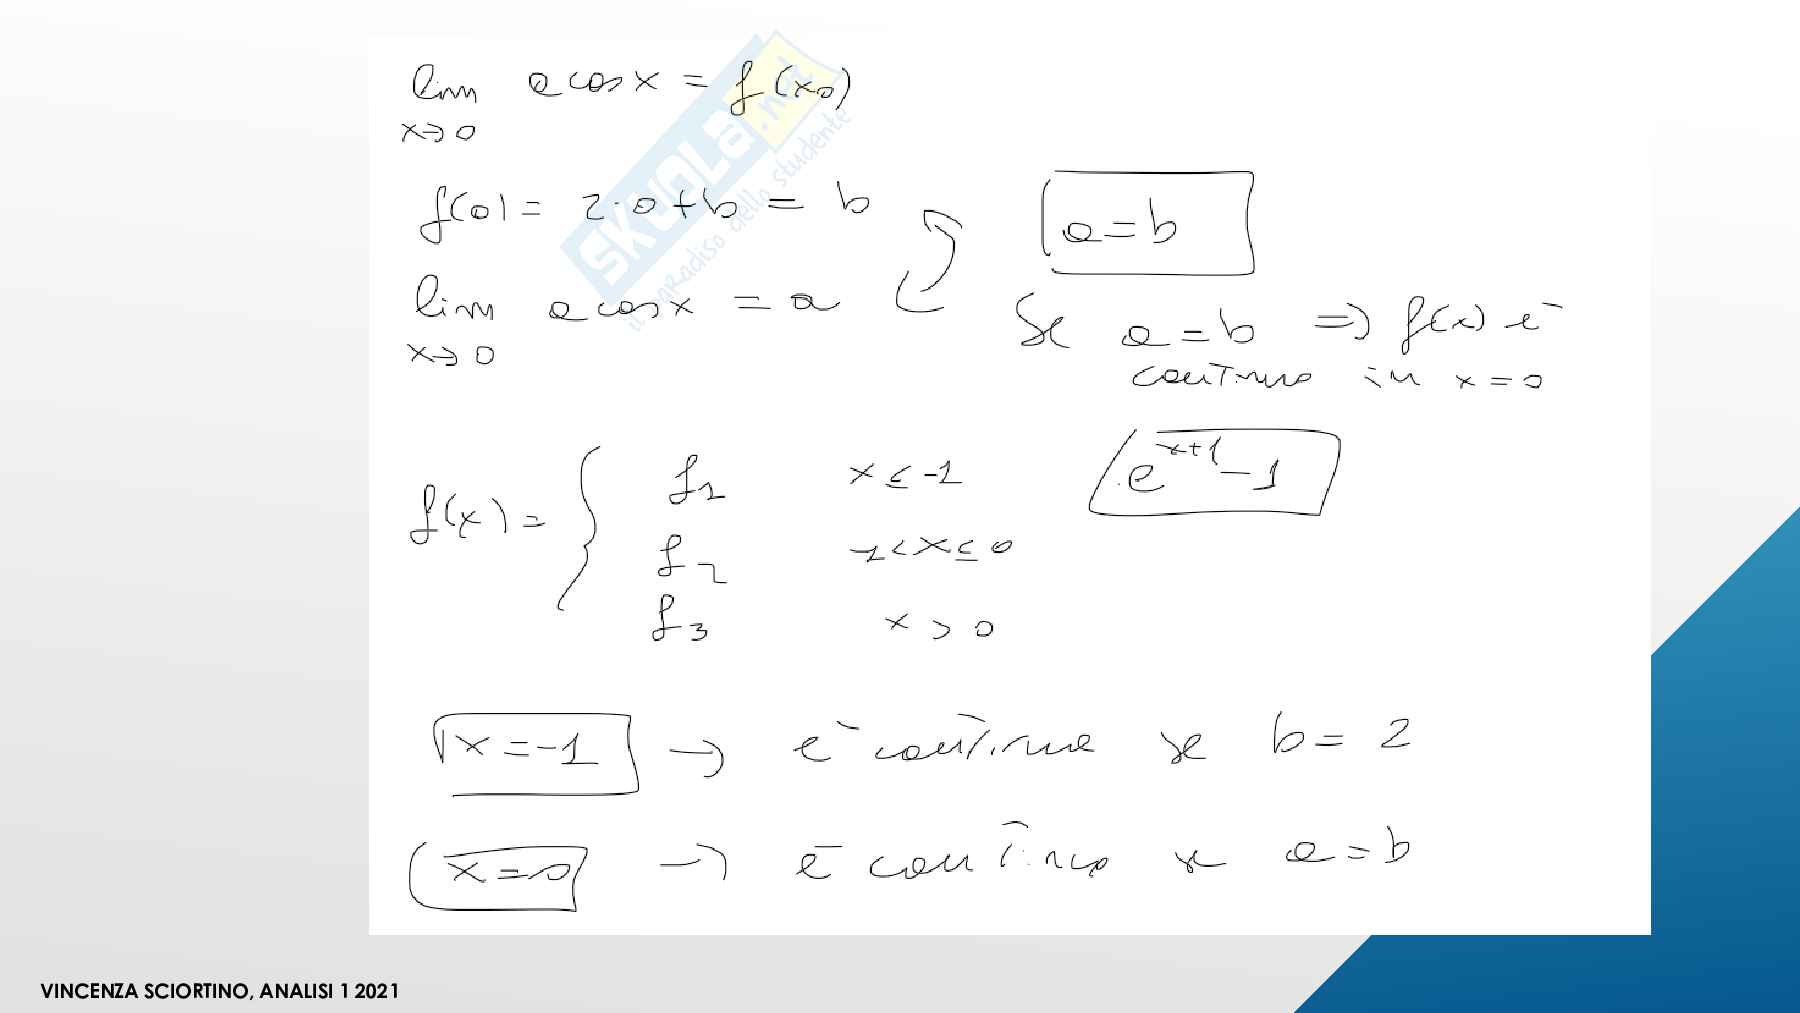 lim a cos x = f(x0)
x→0
f(0) = 2·0 + b = b
a = b
lim a cos x = a
x→0
Se a = b ⇒ f(x) è
continua in x = 0
f(x) = { f1 x ≤ -1
f2 -1 < x ≤ 0
f3 x > 0
e^{x+1} - 1
x = -1 → è continua se b = 2
x = 0 → è continua se a = b
SKUOLA.net
il paradiso dello studente
VINCENZA SCIORTINO, ANALISI 1 2021